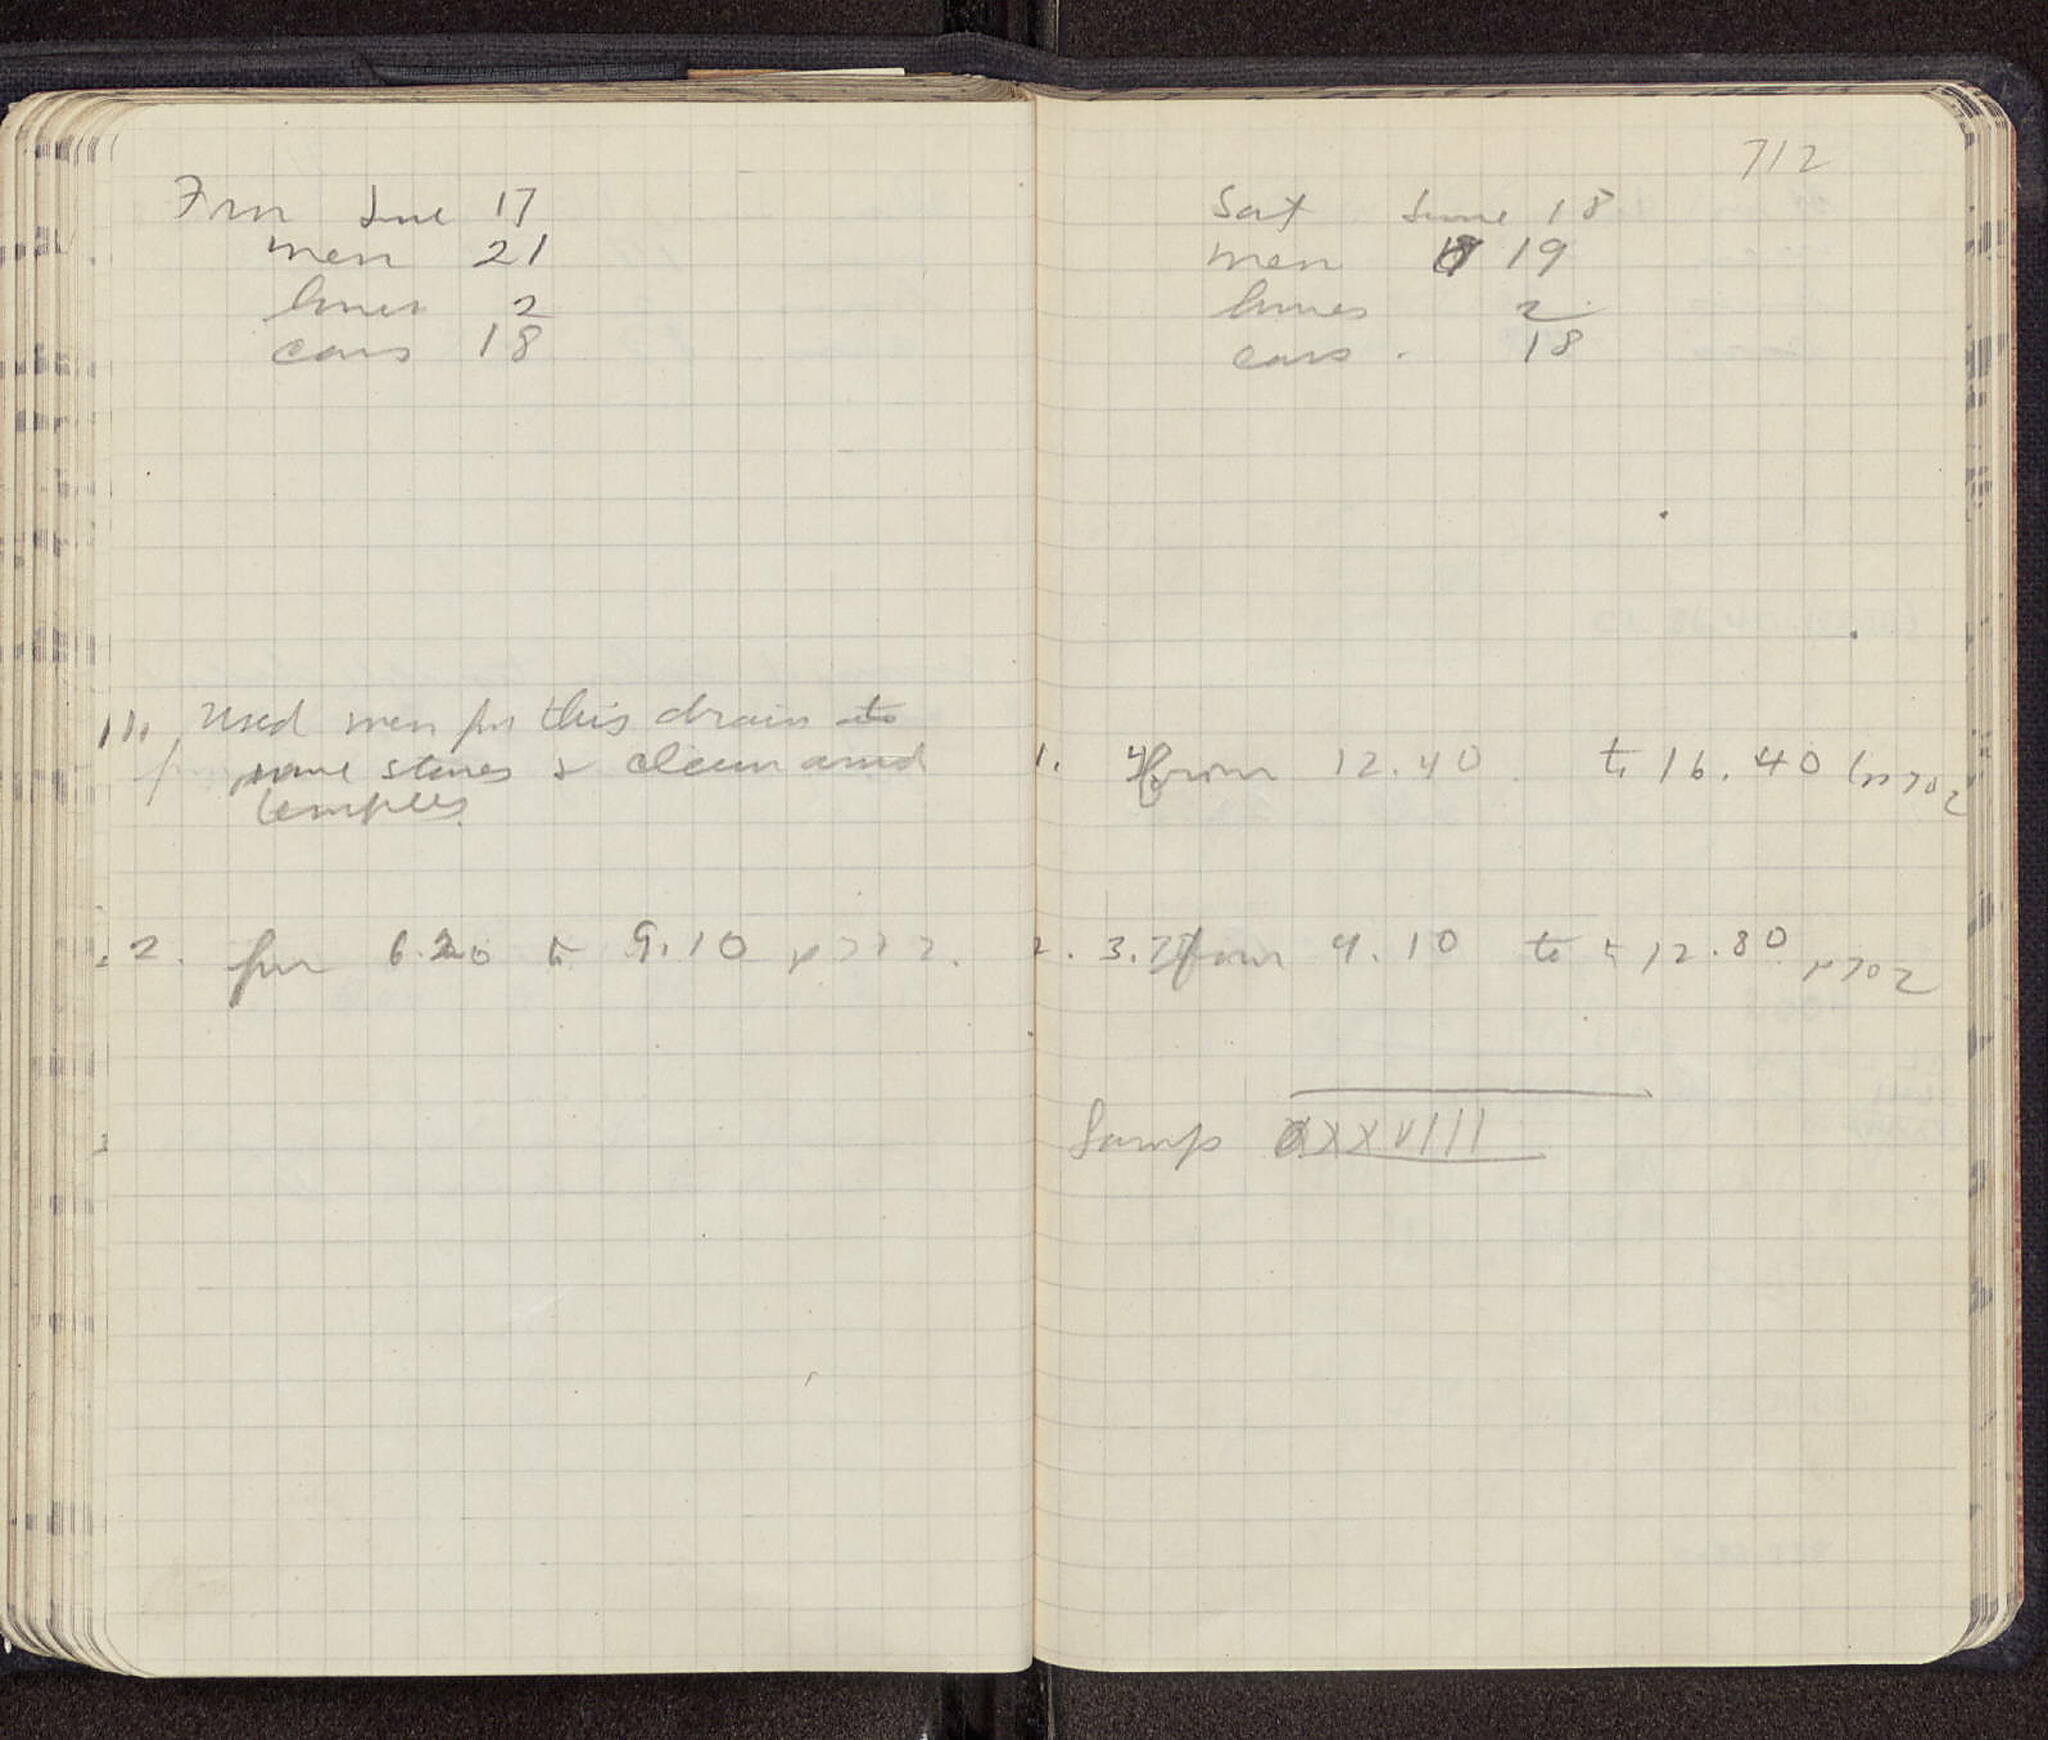 June 17
men 21
2
cars 18
1. Used men for this drain to
move stones & clean around
temples.
2. from 6.20 to 9.10 p
712
Sat June 18
men 19
2
cars 18
1. from 12.40 to 16.40 p702
2. from 9.10 to 12.80 p702
Lamps XXXVIII